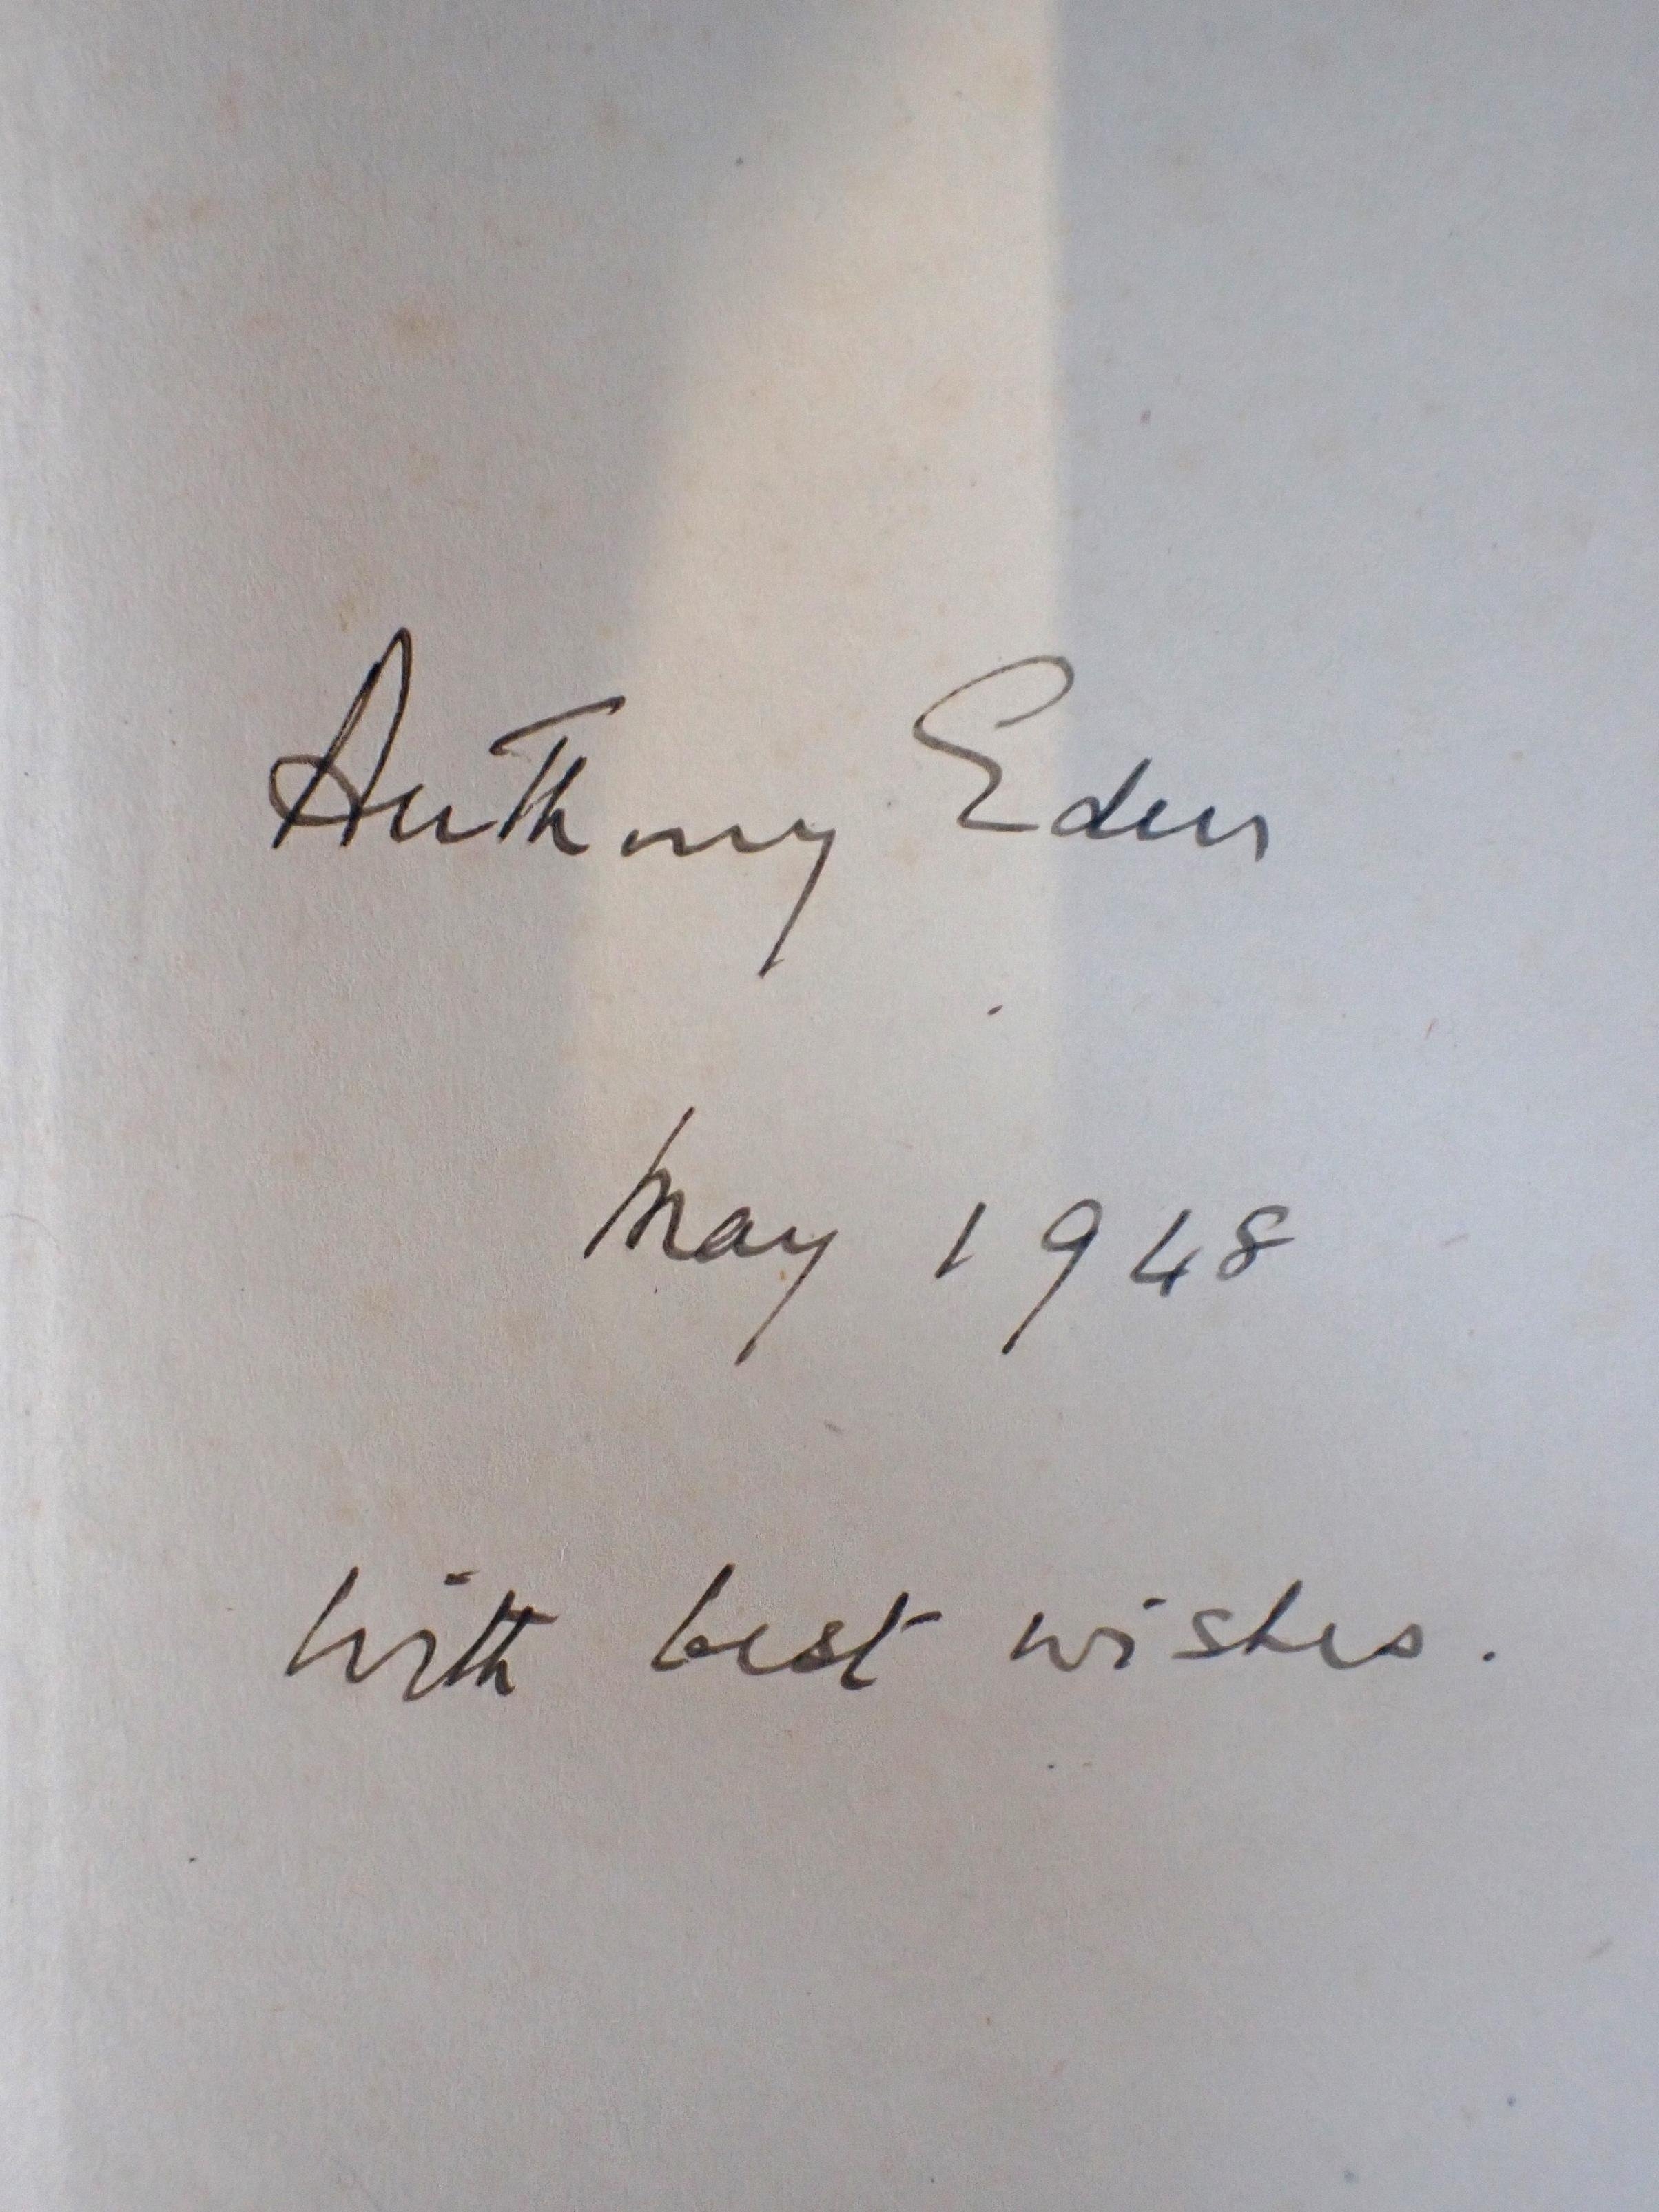 Anthony Eden
May 1948
With best wishes.